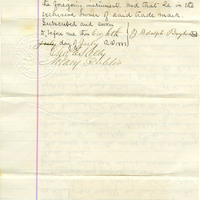 the foregoing instrument and that he is the
exclusive owner of said trade mark.
Subscribed and sworn
before me this Eighth
day of July A.D. 1883
Adolph
Notary Public